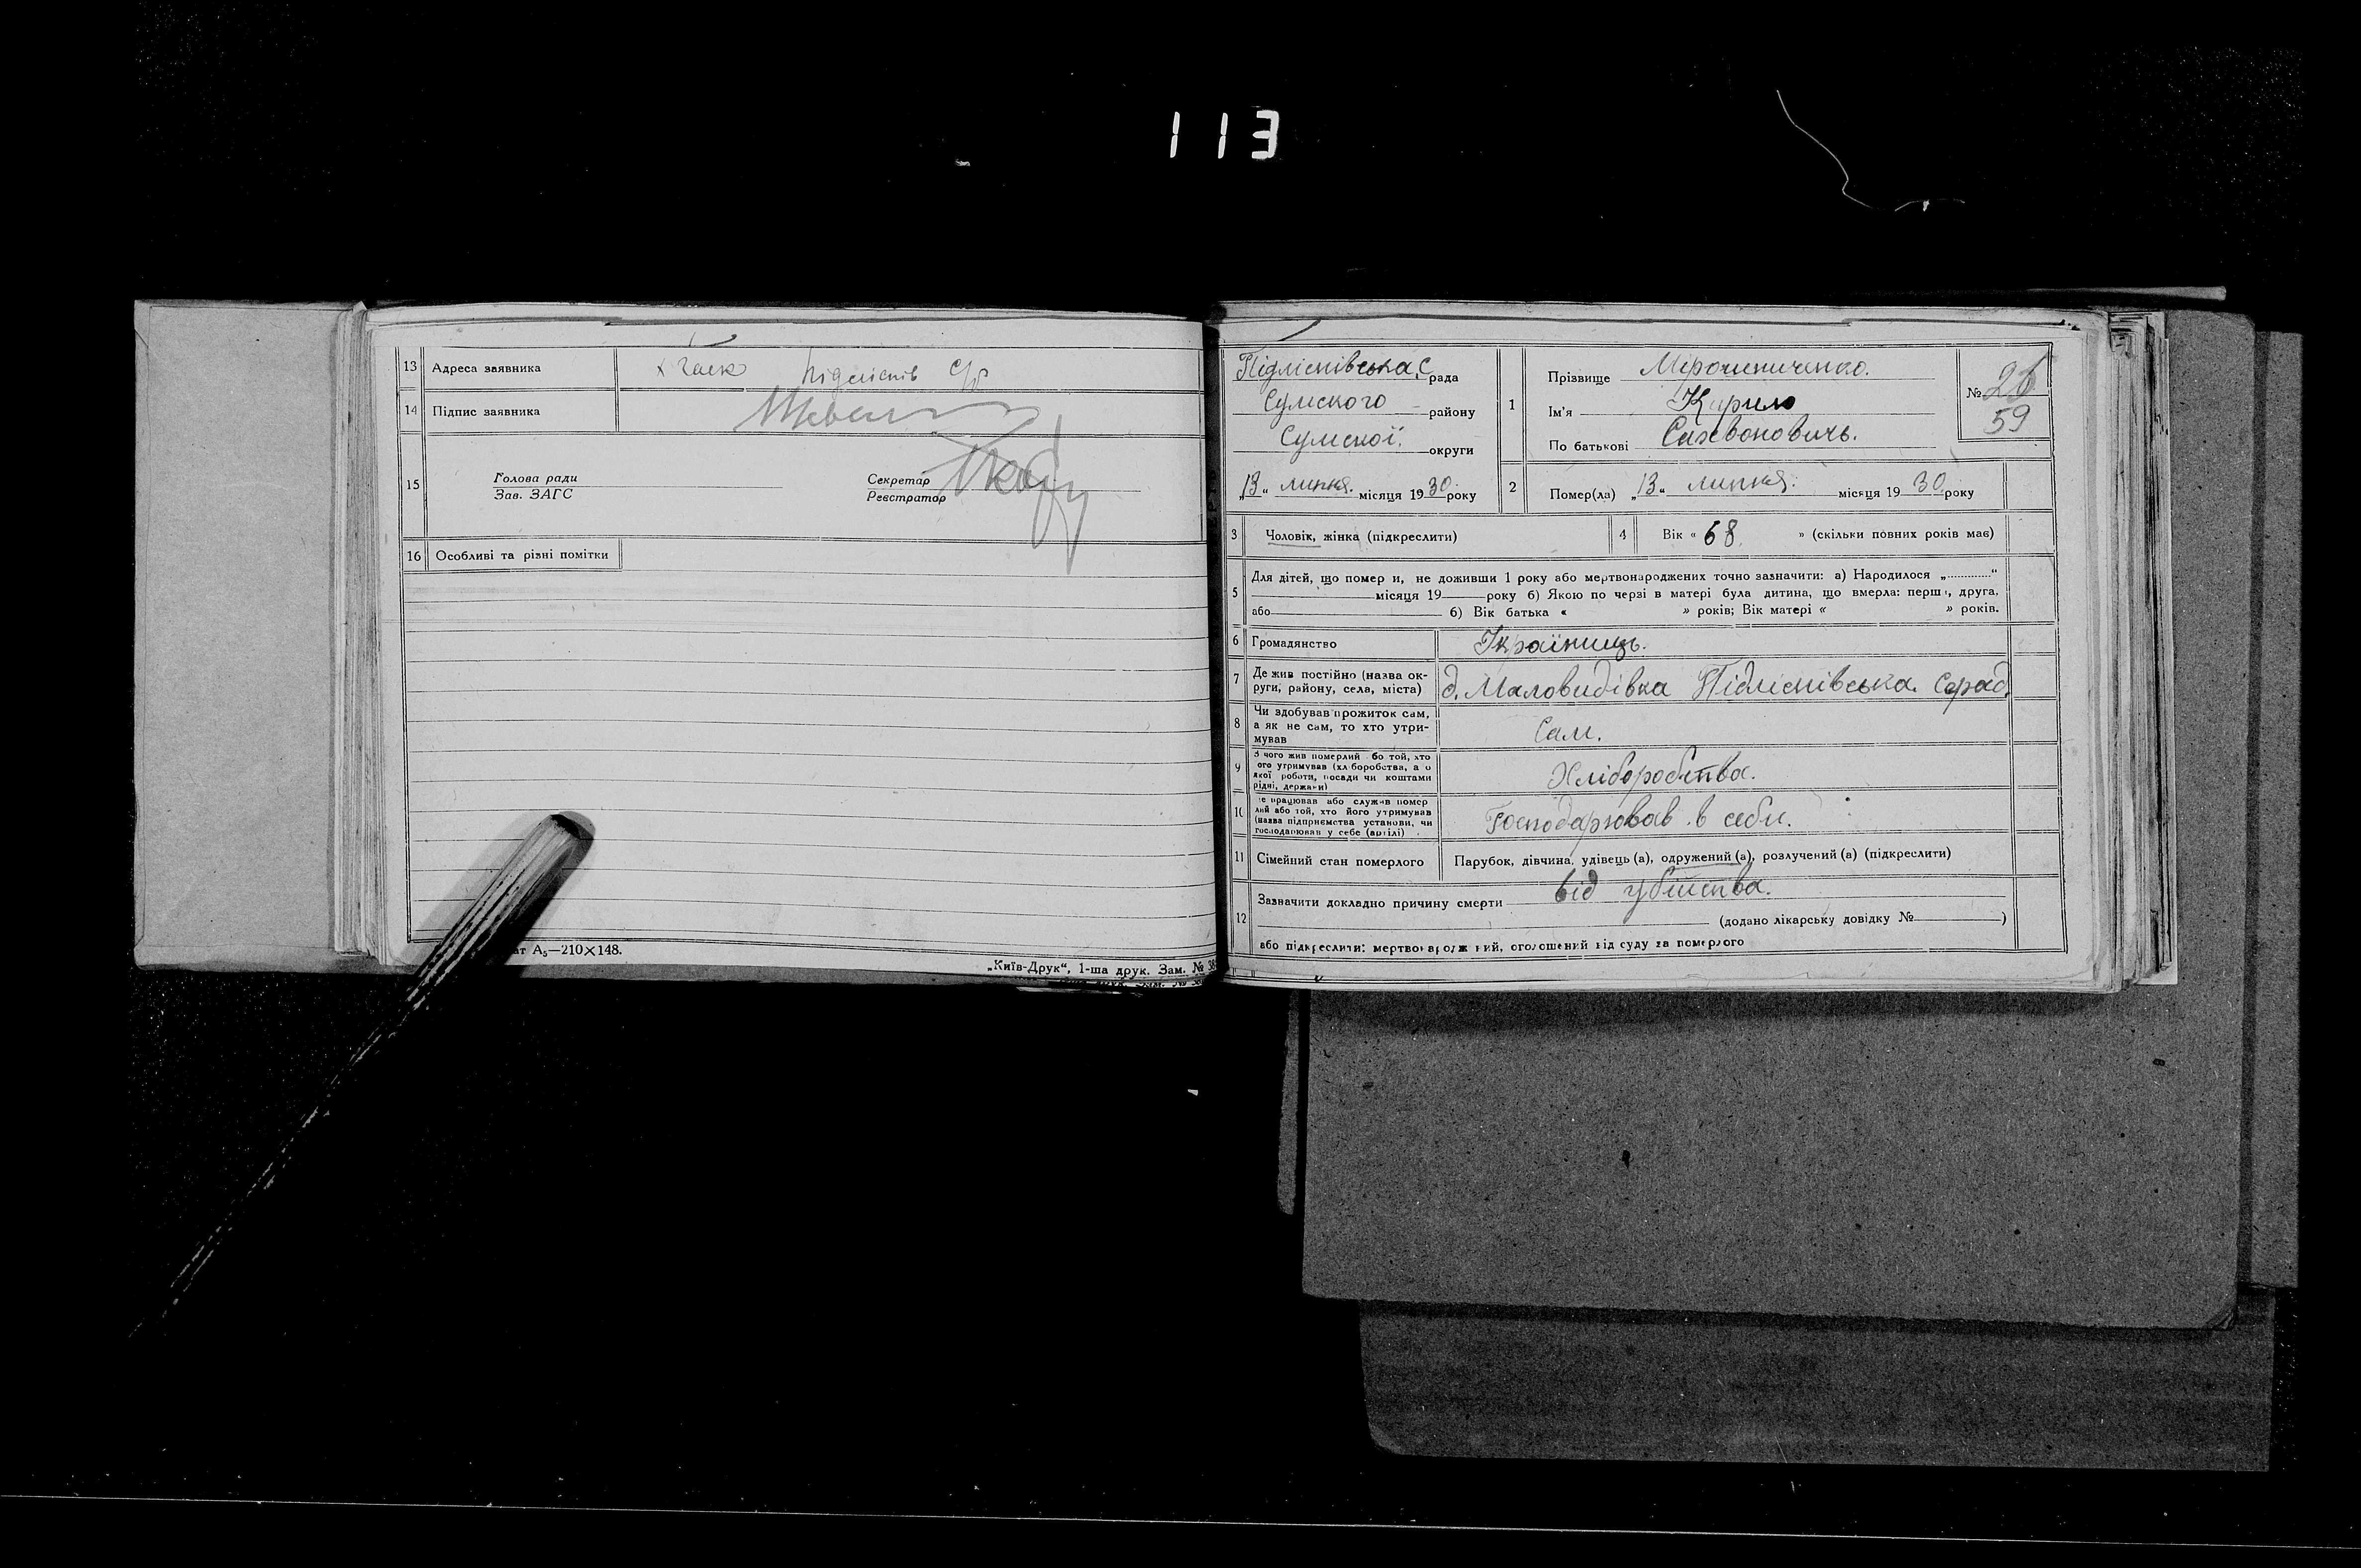 113
13 Адреса заявника х Гаєк Підлісків с/р
14 Підпис заявника
15 Голова ради
Зав. ЗАГС
Секретар
Реєстратор
16 Особливі та різні помітки
ат А₅—210×148.
„Київ-Друк“, 1-ша друк. Зам. № 38
Підліснівська С рада
Сумского району
Сумскої округи
„13“ липня місяця 1930 року
1 Прізвище Мірошниченко.
Ім’я Кирило
По батькові Сазвоновичь.
№ 26
59
2 Помер(ла) „13“ липня. місяця 1930 року
3 Чоловік, жінка (підкреслити)
4 Вік « 68. » (скільки повних років має)
5 Для дітей, що помер и, не доживши 1 року або мертвонароджених точно зазначити: а) Народилося „............“
місяця 19 року б) Якою по черзі в матері була дитина, що вмерла: перш, друга,
або б) Вік батька « » років; Вік матері « » років.
6 Громадянство Українць.
7 Де жив постійно (назва ок-
руги, району, села, міста) д. Маловидівка Підліснівська. Сорад.
8 Чи здобував прожиток сам,
а як не сам, то хто утри-
мував Сам.
9 З чого жив померлий бо той, хто
ого утримував (хліборобства, а о
якої роботи, посади чи коштами
рідні, держави) Хліборобства.
10 е працював або служив помер
лий або той, хто його утримував
(назва підприємства установи, чи
господарював у себе (артілі) Господарював в себи.
11 Сімейний стан померлого Парубок, дівчина, удівець (а), одружений (а), розлучений (а) (підкреслити)
12 Зазначити докладно причину смерти від убійства.
(додано лікарську довідку № )
або підкреслити: мертвонароджений, оголошений від суду за померлого